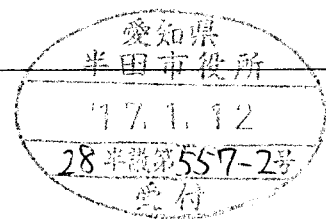 愛知県
半田市役所
'17.1.12
28半設第557-2号
受付